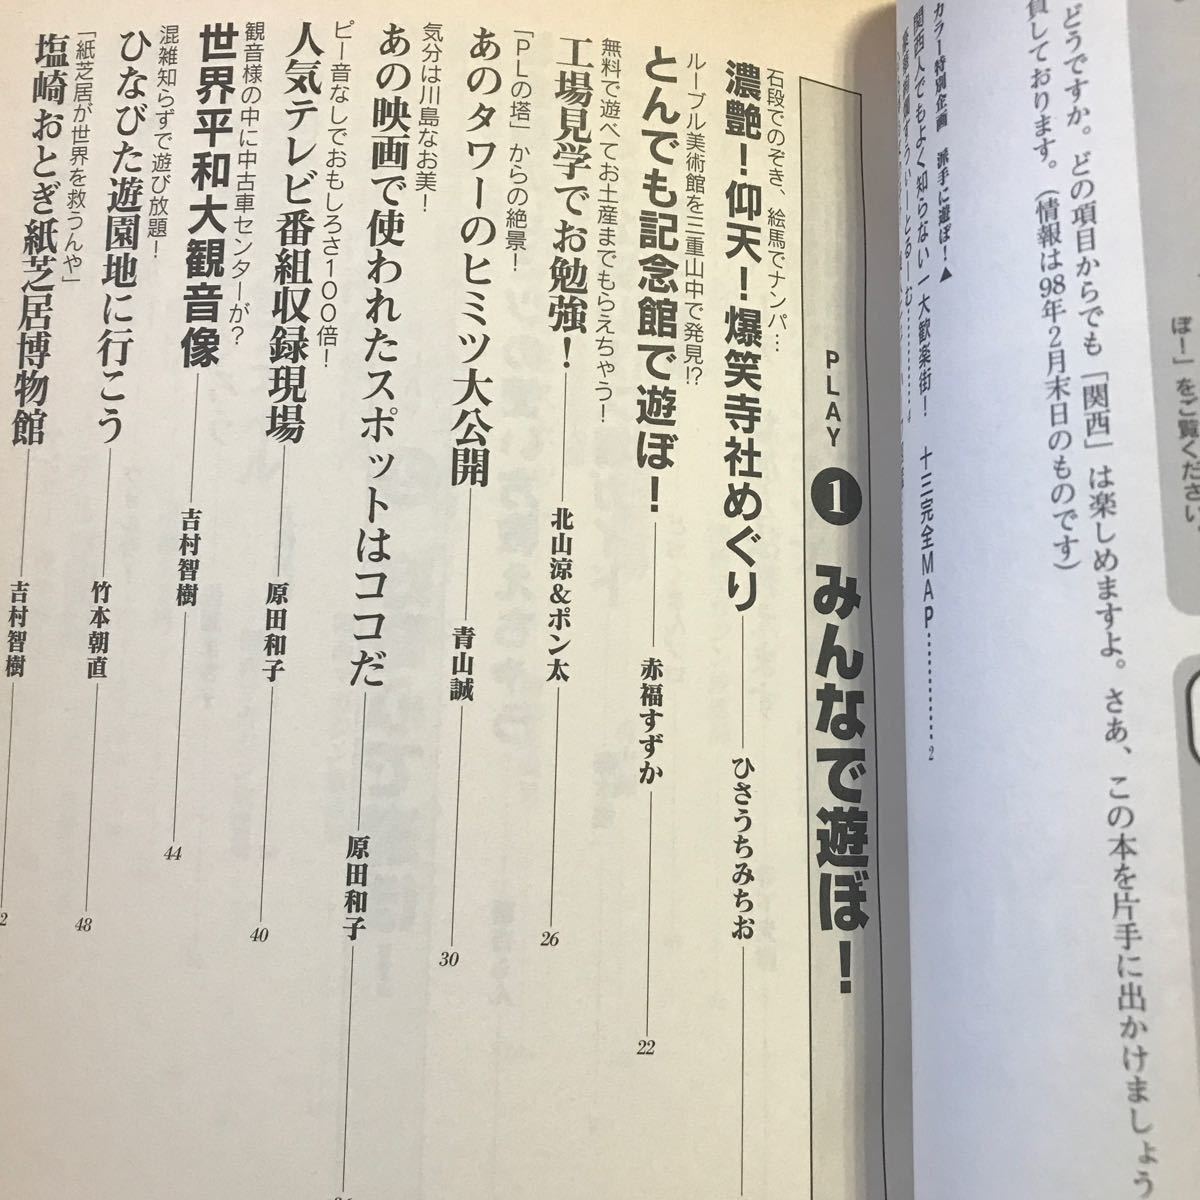 ぼー」をご覧ください
どうですか。どの項目からでも「関西」は楽しめますよ。さあ、この本を片手に出かけましょう
負しております。（情報は98年2月末日のものです）
カラー特別企画　派手に遊ぼ！▲
関西人でもよく知らない一大歓楽街！　十三完全MAP…………2
PLAY ❶ みんなで遊ぼ！
石段でのぞき、絵馬でナンパ…
濃艶！仰天！爆笑寺社めぐり　ひさうちみちお
ルーブル美術館を三重山中で発見!?
とんでも記念館で遊ぼ！　赤福すずか　22
無料で遊べてお土産までもらえちゃう！
工場見学でお勉強！　北山涼＆ポン太　26
「PLの塔」からの絶景！
あのタワーのヒミツ大公開　青山誠　30
気分は川島なお美！
あの映画で使われたスポットはココだ　原田和子
ピー音なしでおもしろさ100倍！
人気テレビ番組収録現場　原田和子　40
観音様の中に中古車センターが?
世界平和大観音像　吉村智樹　44
混雑知らずで遊び放題！
ひなびた遊園地に行こう　竹本朝直　48
「紙芝居が世界を救うんや」
塩崎おとぎ紙芝居博物館　吉村智樹　2